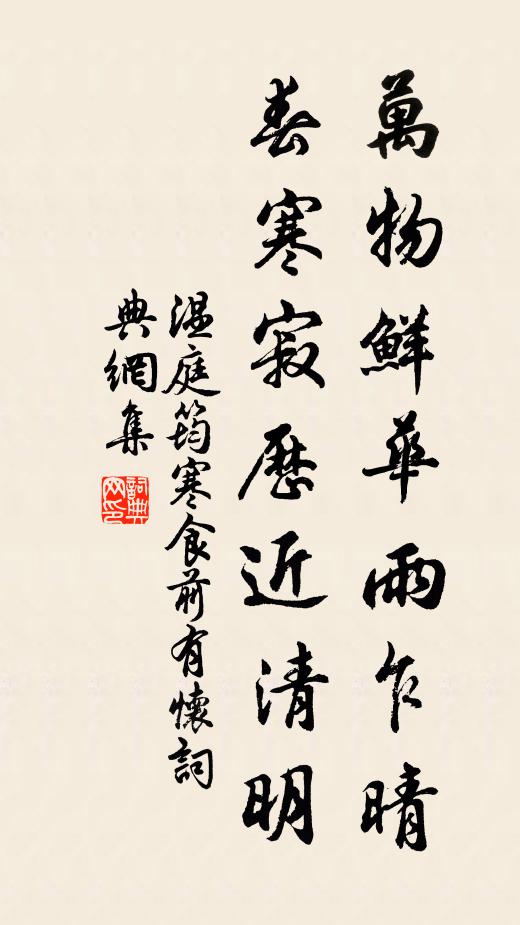 萬物鮮華雨乍晴
春寒寂歷近清明
温庭筠寒食前有懷詞
典網集
詞典
网印